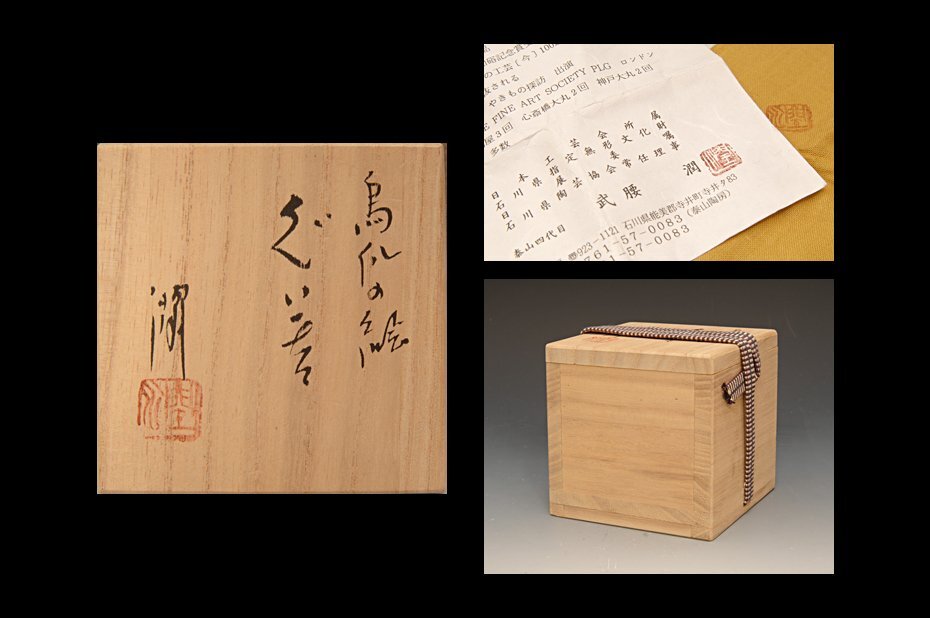 烏瓜の絵
ぐい呑
潤
の工芸〔今〕100
抜される
やきもの探訪 出演
E FINE ART SOCIETY PLG ロンドン
屋3回 心斎橋大丸2回 神戸大丸2回
多数
日本工芸会所属
石川県指定無形文化財
日展委嘱
石川県陶芸協会常任理事
武腰 潤
泰山四代目
〠923-1121 石川県能美郡寺井町寺井タ83
761-57-0083(泰山陶房)
61-57-0083